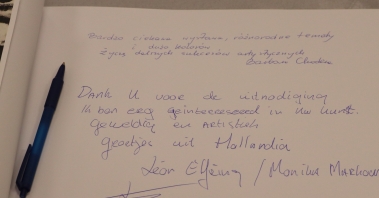 Bardzo ciekawa wystawa, różnorodne tematy
i dużo kolorów
Życzę dalszych sukcesów artystycznych
Barbara
Dank U voor de uitnodiging
Ik ben erg geïnteresseerd in Uw kunst.
Geweldig en Artistiek
groetjes uit Hollandia
Léon / Monika